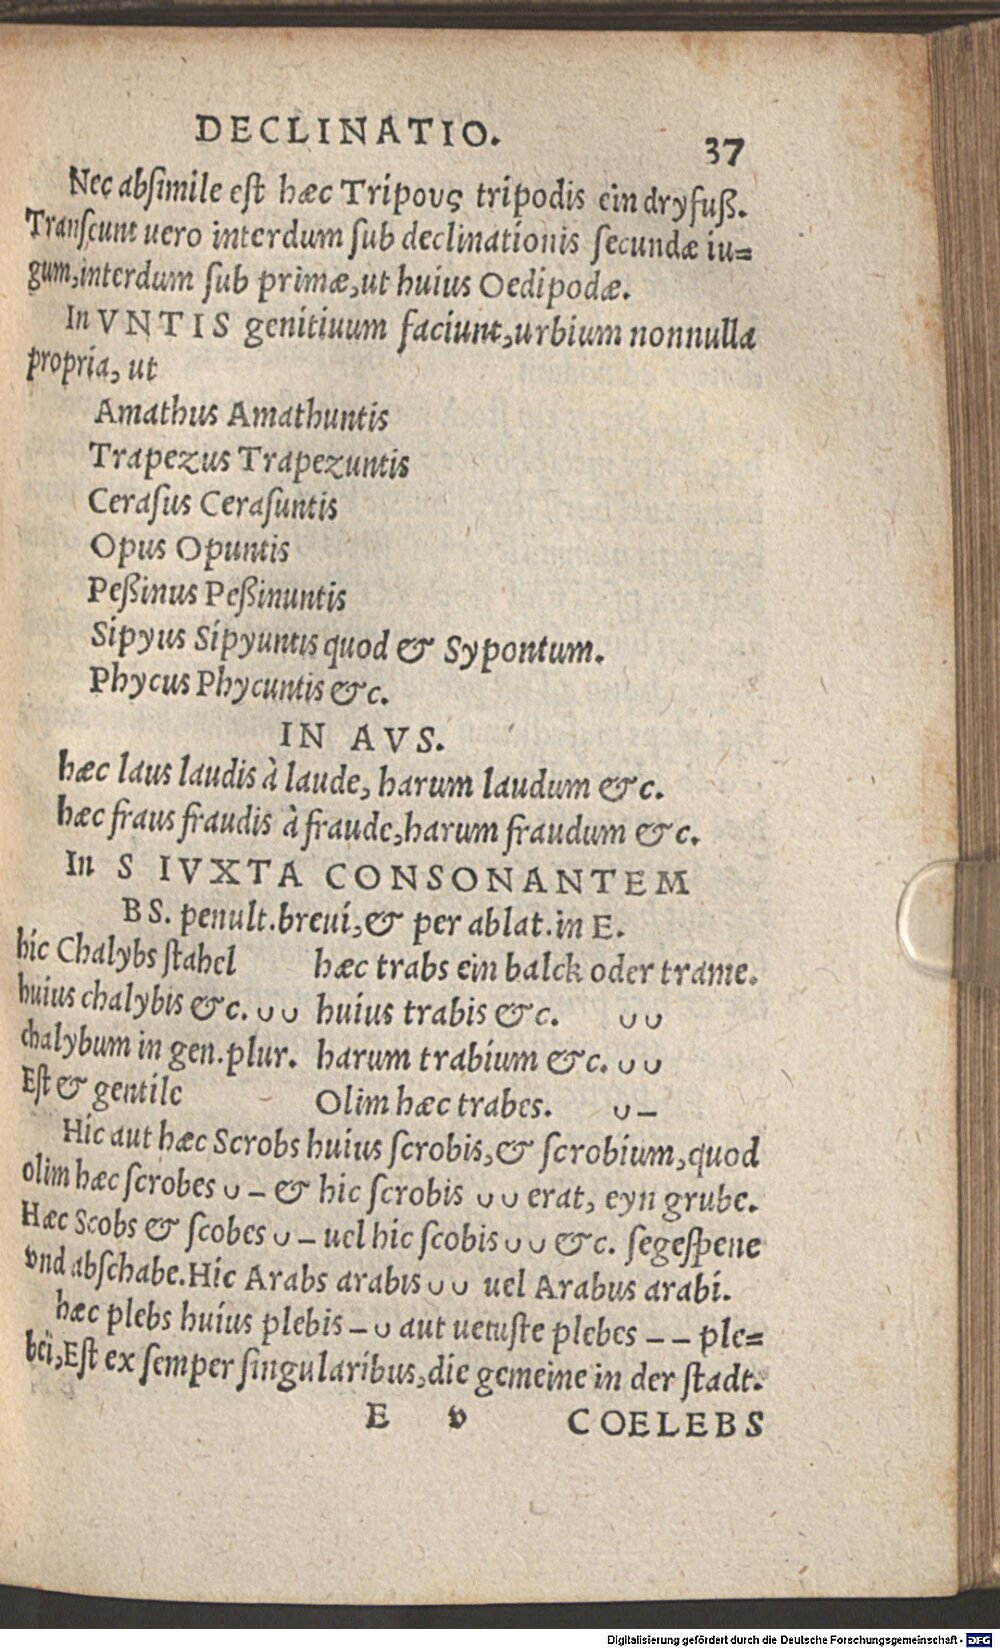 DECLINATIO.
37
Nec absimile est hæc Tripους tripodis ein dryfuß.
Transeunt uero interdum sub declinationis secundæ iu=
gum, interdum sub primæ, ut huius Oedipodæ.
In VNTIS genitiuum faciunt, urbium nonnulla
propria, ut
Amathus Amathuntis
Trapezus Trapezuntis
Cerasus Cerasuntis
Opus Opuntis
Peßinus Peßinuntis
Sipyus Sipyuntis quod & Sypontum.
Phycus Phycuntis &c.
IN AVS.
hæc laus laudis à laude, harum laudum &c.
hæc fraus fraudis à fraude, harum fraudum &c.
In S IVXTA CONSONANTEM
BS. penult. breui, & per ablat. in E.
hic Chalybs stahel
huius chalybis &c. ∪ ∪
chalybum in gen. plur.
Est & gentile
hæc trabs ein balck oder trame.
huius trabis &c. ∪ ∪
harum trabium &c. ∪ ∪
Olim hæc trabes. ∪ –
Hic aut hæc Scrobs huius scrobis, & scrobium, quod
olim hæc scrobes ∪ – & hic scrobis ∪ ∪ erat, eyn grube.
Hæc Scobs & scobes ∪ – uel hic scobis ∪ ∪ &c. segespene
vnd abschabe. Hic Arabs arabis ∪ ∪ uel Arabus arabi.
hæc plebs huius plebis – ∪ aut uetuste plebes – – ple=
bëi, Est ex semper singularibus, die gemeine in der stadt.
E v COELEBS
Digitalisierung gefördert durch die Deutsche Forschungsgemeinschaft - DFG